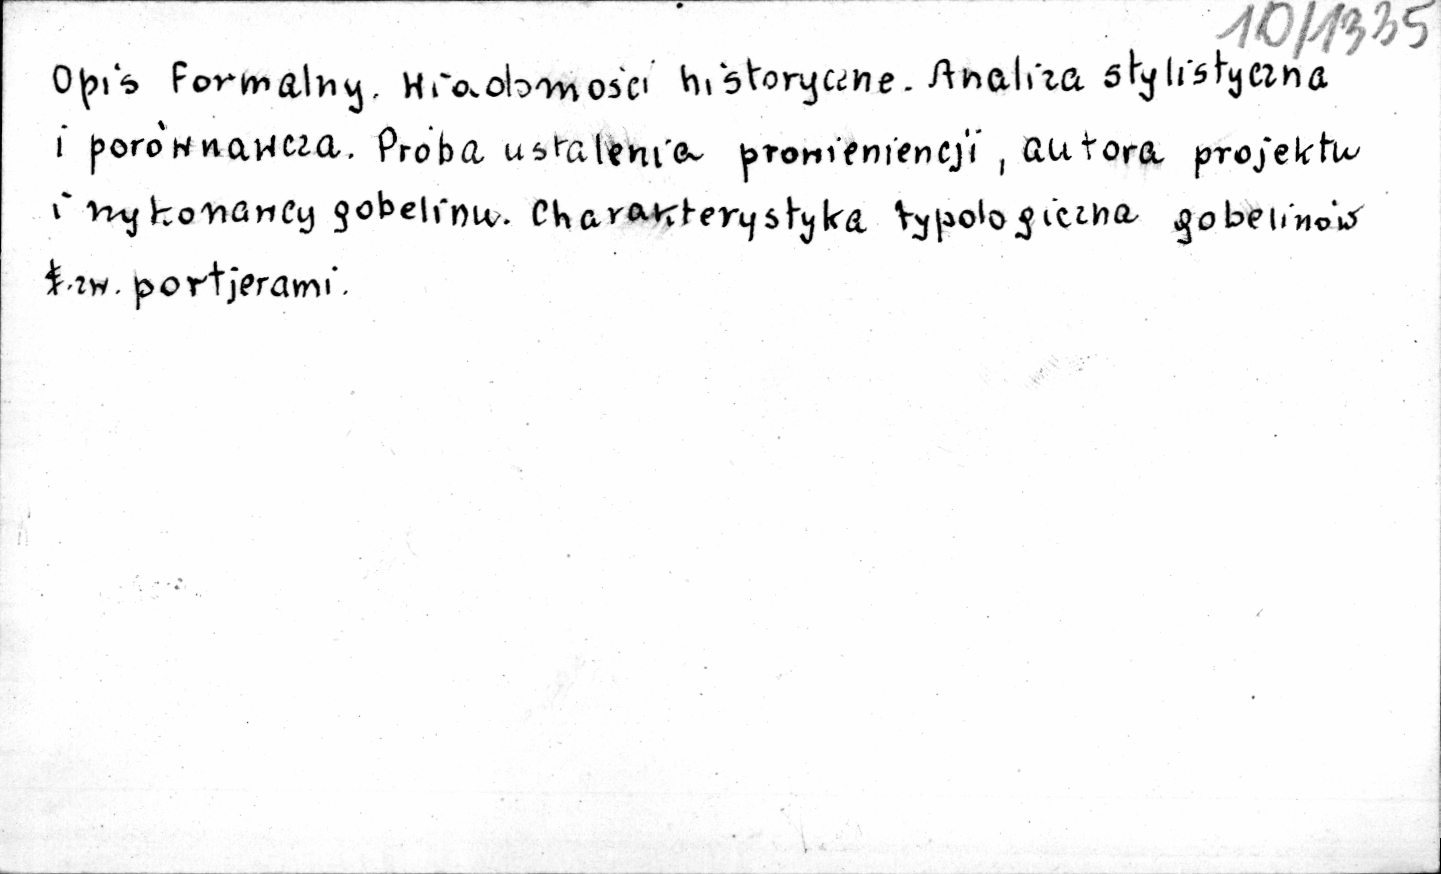 10/1335
Opis formalny. Wiadomości historyczne. Analiza stylistyczna
i porównawcza. Próba ustalenia prowieniencji, autora projektu
i wykonawcy gobelinu. Charakterystyka typologiczna gobelinów
t.zw. portjerami.